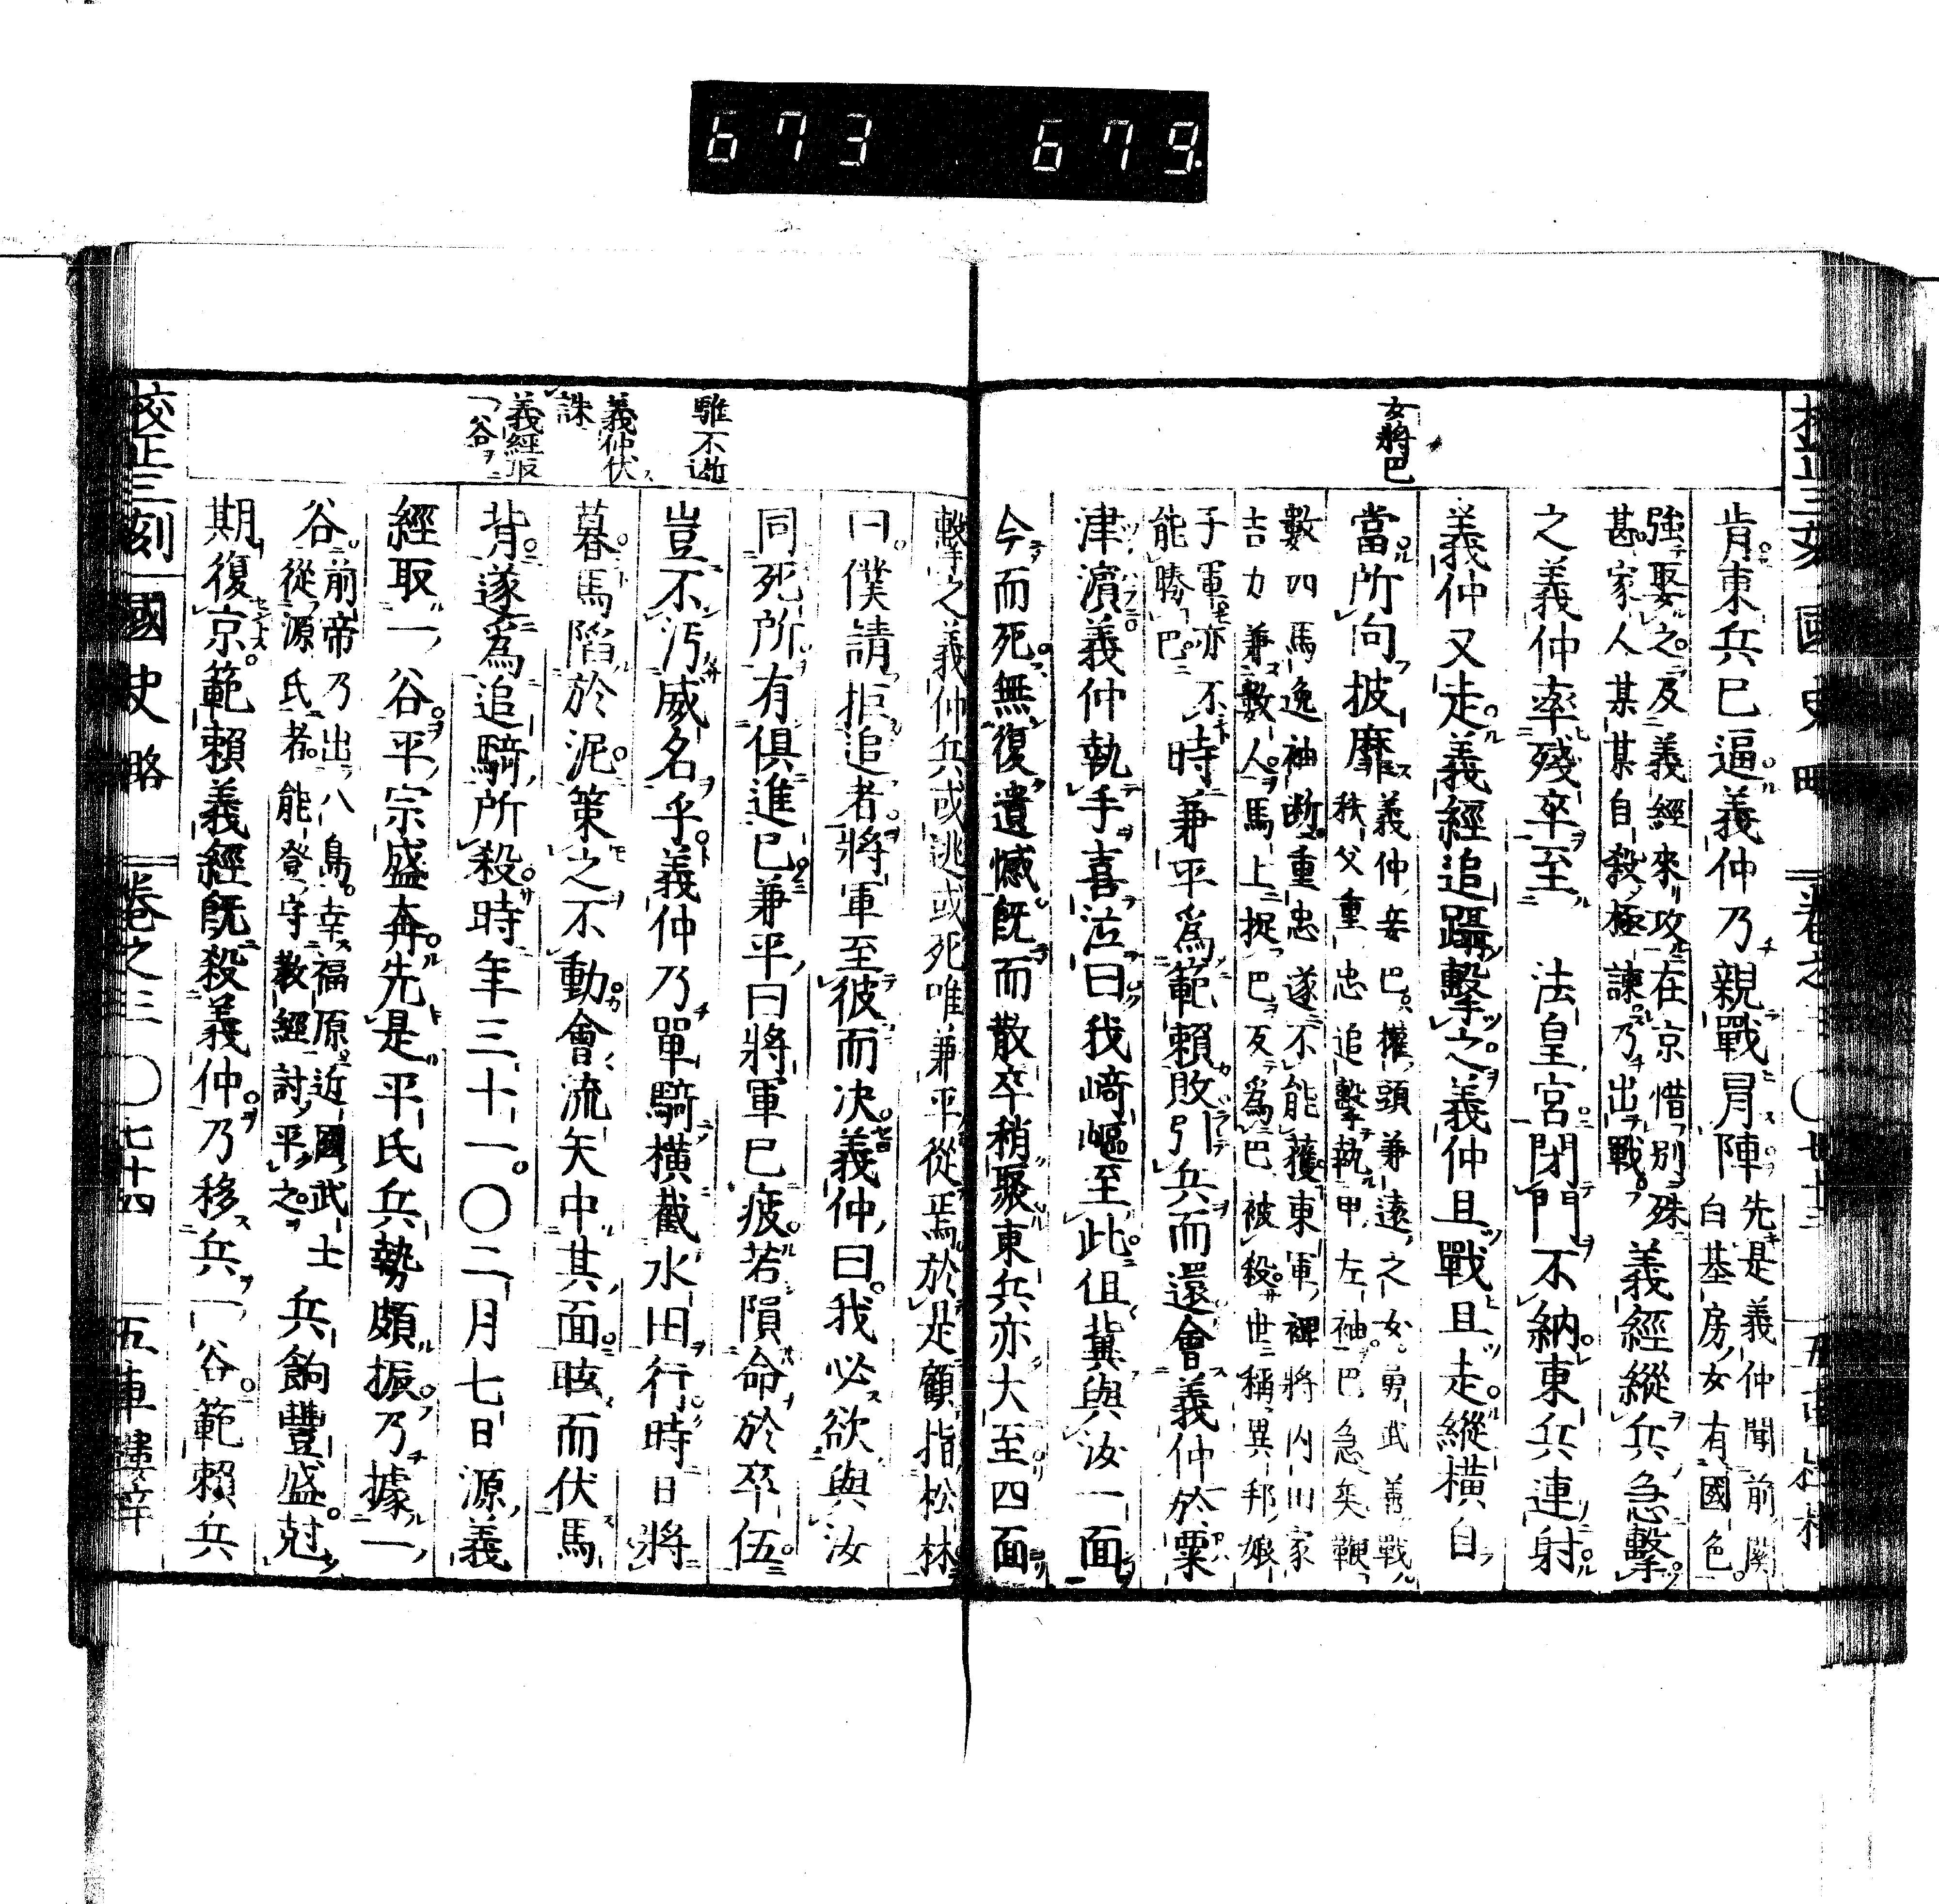 673 679
女將巴
肯東兵已逼義仲乃親戰冐陣先是義仲聞前關白基房女有國色
強娶之及義經來攻在京惜別殊甚家人某某自殺極諫乃出戰義經縱兵急擊
之義仲率殘卒至 法皇宮閉門不納東兵連射
義仲又走義經追躡擊之義仲且戰且走縱橫自
當所向披靡義仲妾巴權頭兼遠之女勇武善戰秩父重忠追擊執甲左袖巴急奕鞭
數四馬逸袖断重忠遂不能獲東軍裨將内川家吉力兼數人馬上捉巴反爲巴被殺世稱異邦娘
子軍亦不能勝巴時兼平爲範賴敗引兵而還會義仲於粟
津濵義仲執手喜泣曰我崎嶇至此但冀與汝一面
今而死無復遺憾既而散卒稍聚東兵亦大至四面
騅不逝
義仲伏誅
義經取一谷
擊之義仲兵或逃或死唯兼平從焉於是顧指松林
曰僕請拒追者將軍至彼而决義仲曰我必欲與汝
同死所有俱進已兼平曰將軍已疲若隕命於卒伍
豈不汚威名乎義仲乃單騎橫截水田行時日將
暮馬陷於泥策之不動會流矢中其面眩而伏馬
背遂爲追騎所殺時年三十一〇二月七日源義
經取一谷平宗盛奔先是平氏兵勢頗振乃據一
谷前帝乃出八島幸福原近國武士從源氏者能登守教經討平之兵餉豐盛尅
期復京範賴義經既殺義仲乃移兵一谷範賴兵
校正三刻國史略 卷之三 〇七十四 五車樓梓